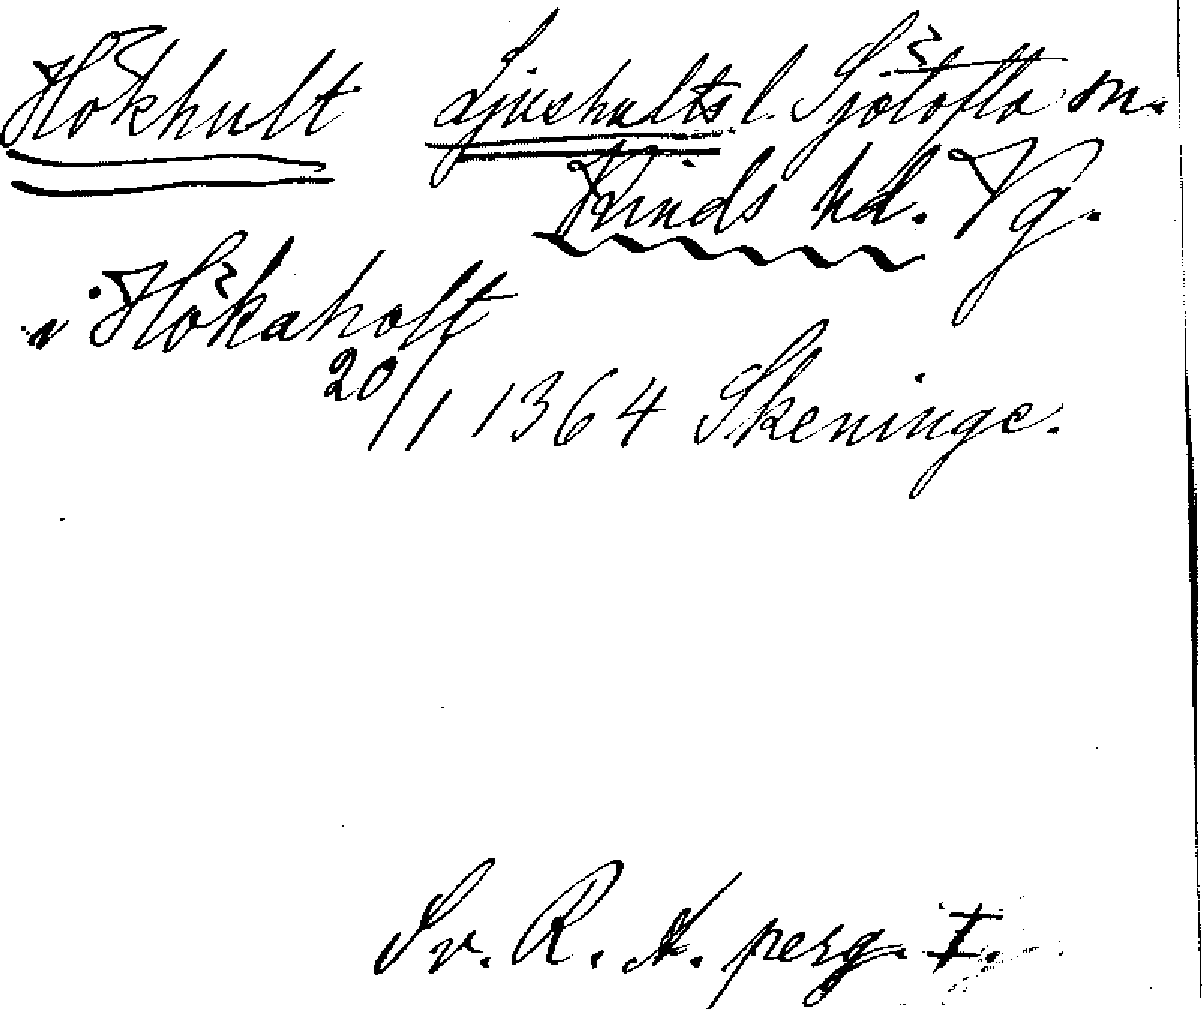 Hökhult Ljushults l. Sjötofta sn.
Kinds hd. Vg.
i Hökaholt
20/1 1364 Skeninge.
Sv. R. A. perg. I.